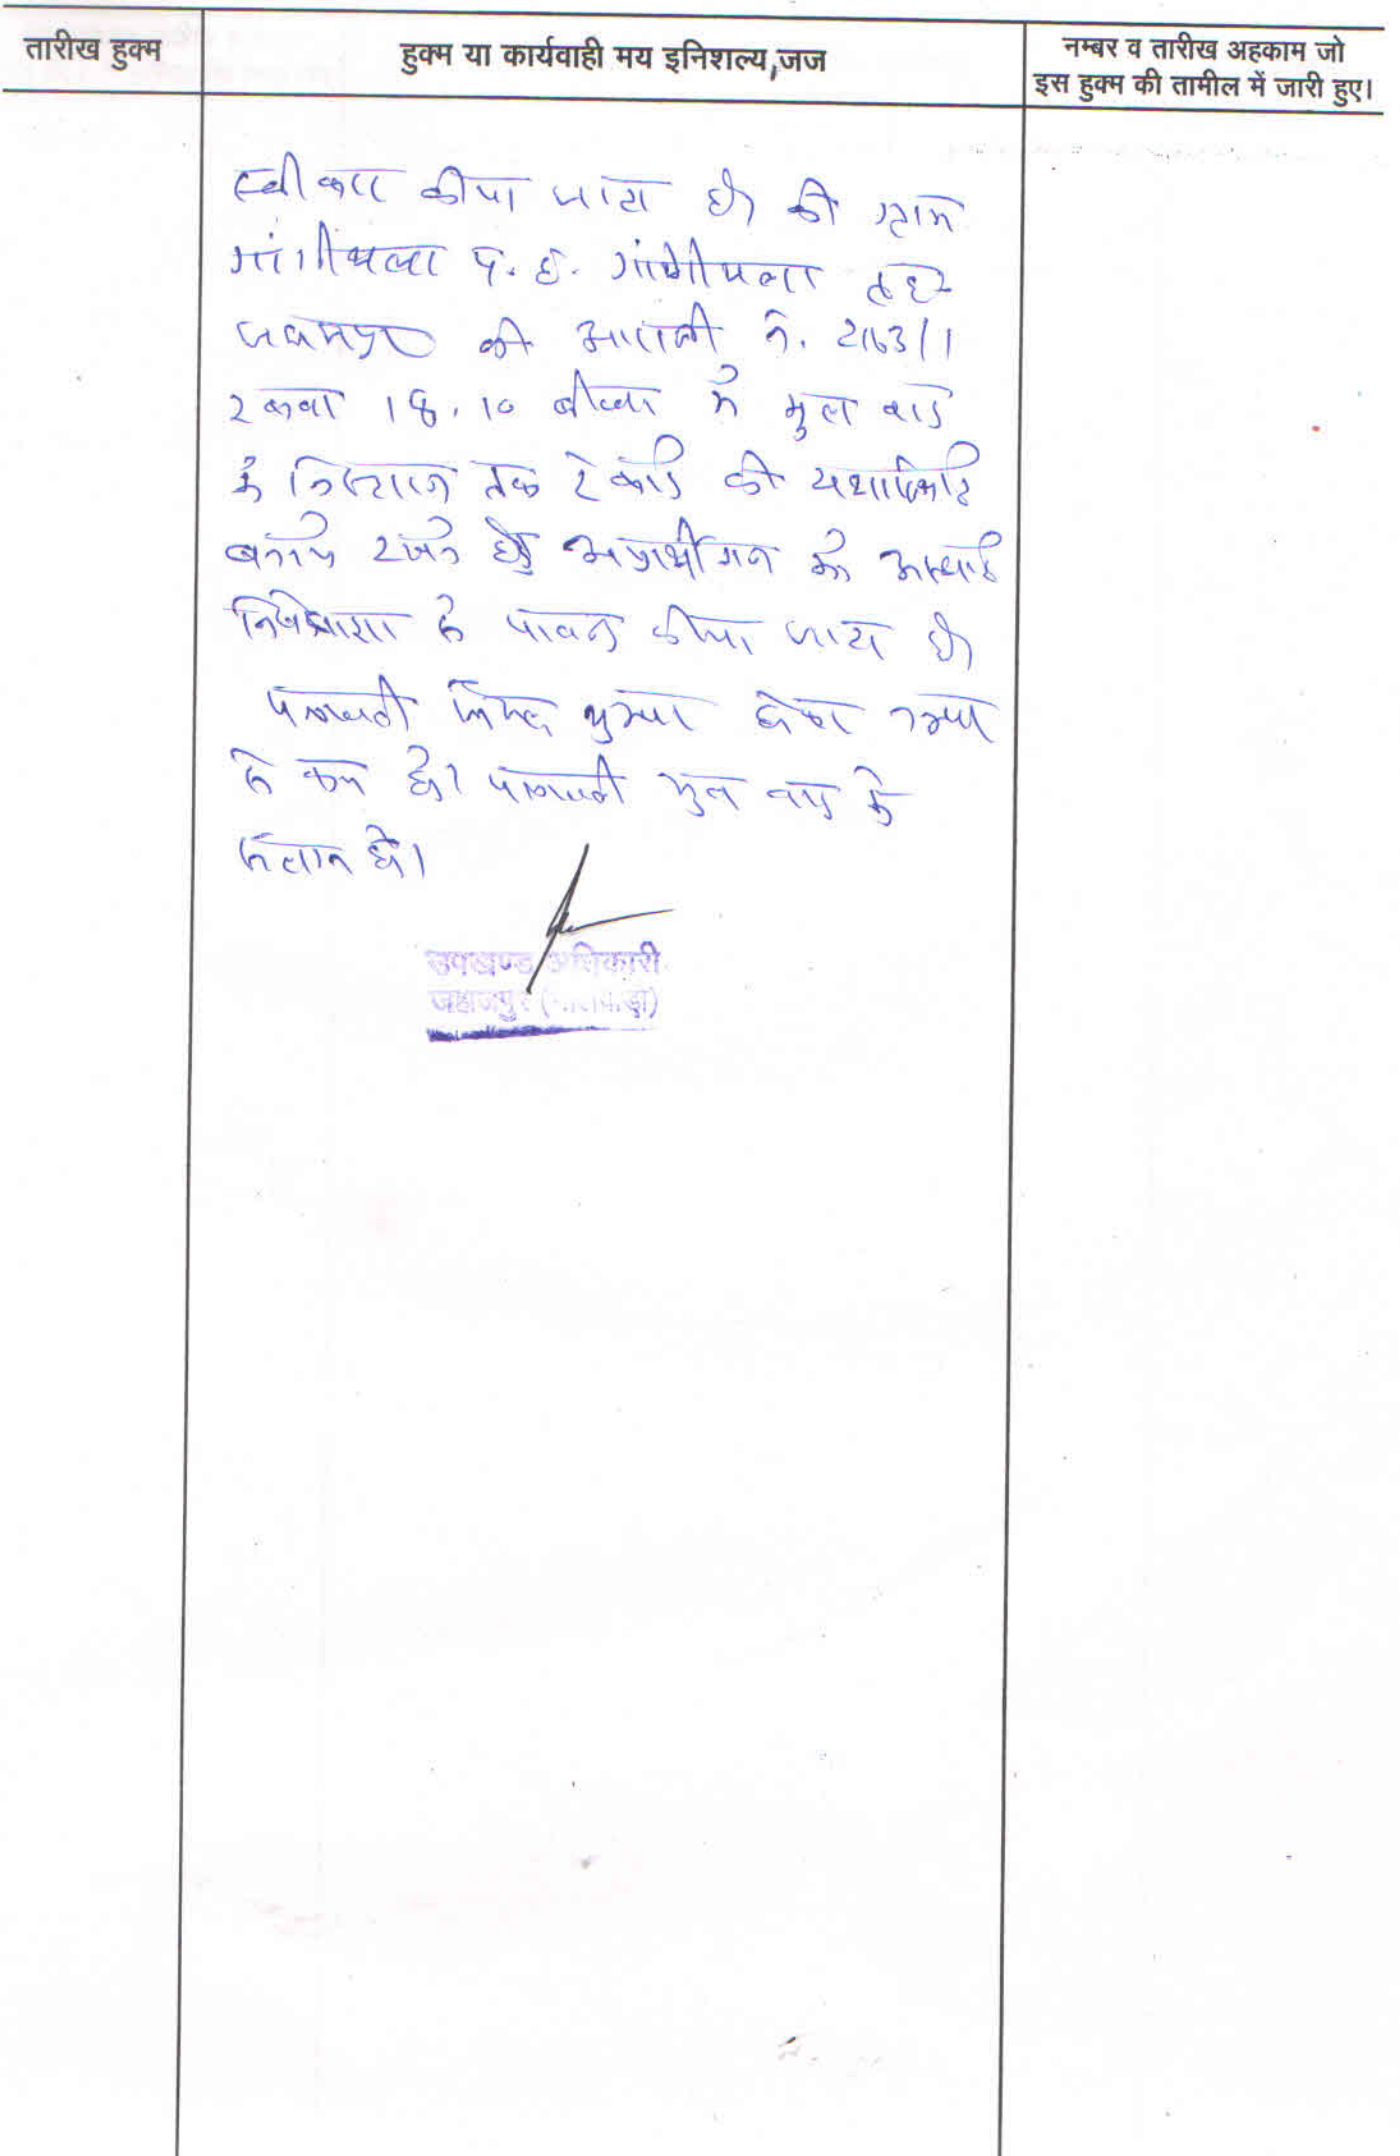 तारीख हुक्म
हुक्म या कार्यवाही मय इनिशल्य,जज
नम्बर व तारीख अहकाम जो
इस हुक्म की तामील में जारी हुए।
स्वीकार कीया जाता है की ग्राम
गांगीथला प. ह. गांगीथला तह
जहाजपुर की आराजी नं. 2163/1
रकबा 18.10 बीघा में मुल वाद
के निस्तारण तक रेकार्ड की यथास्थिति
बनाये रखने हेतु अप्रार्थीगण को अस्थाई
निषेधाज्ञा से पाबन्द कीया जाता है
पत्रावली फैसल शुमार होकर नम्बर
से कम हो। पत्रावली मुल वाद के
संलग्न हो।
उपखण्ड अधिकारी
जहाजपुर (भीलवाड़ा)